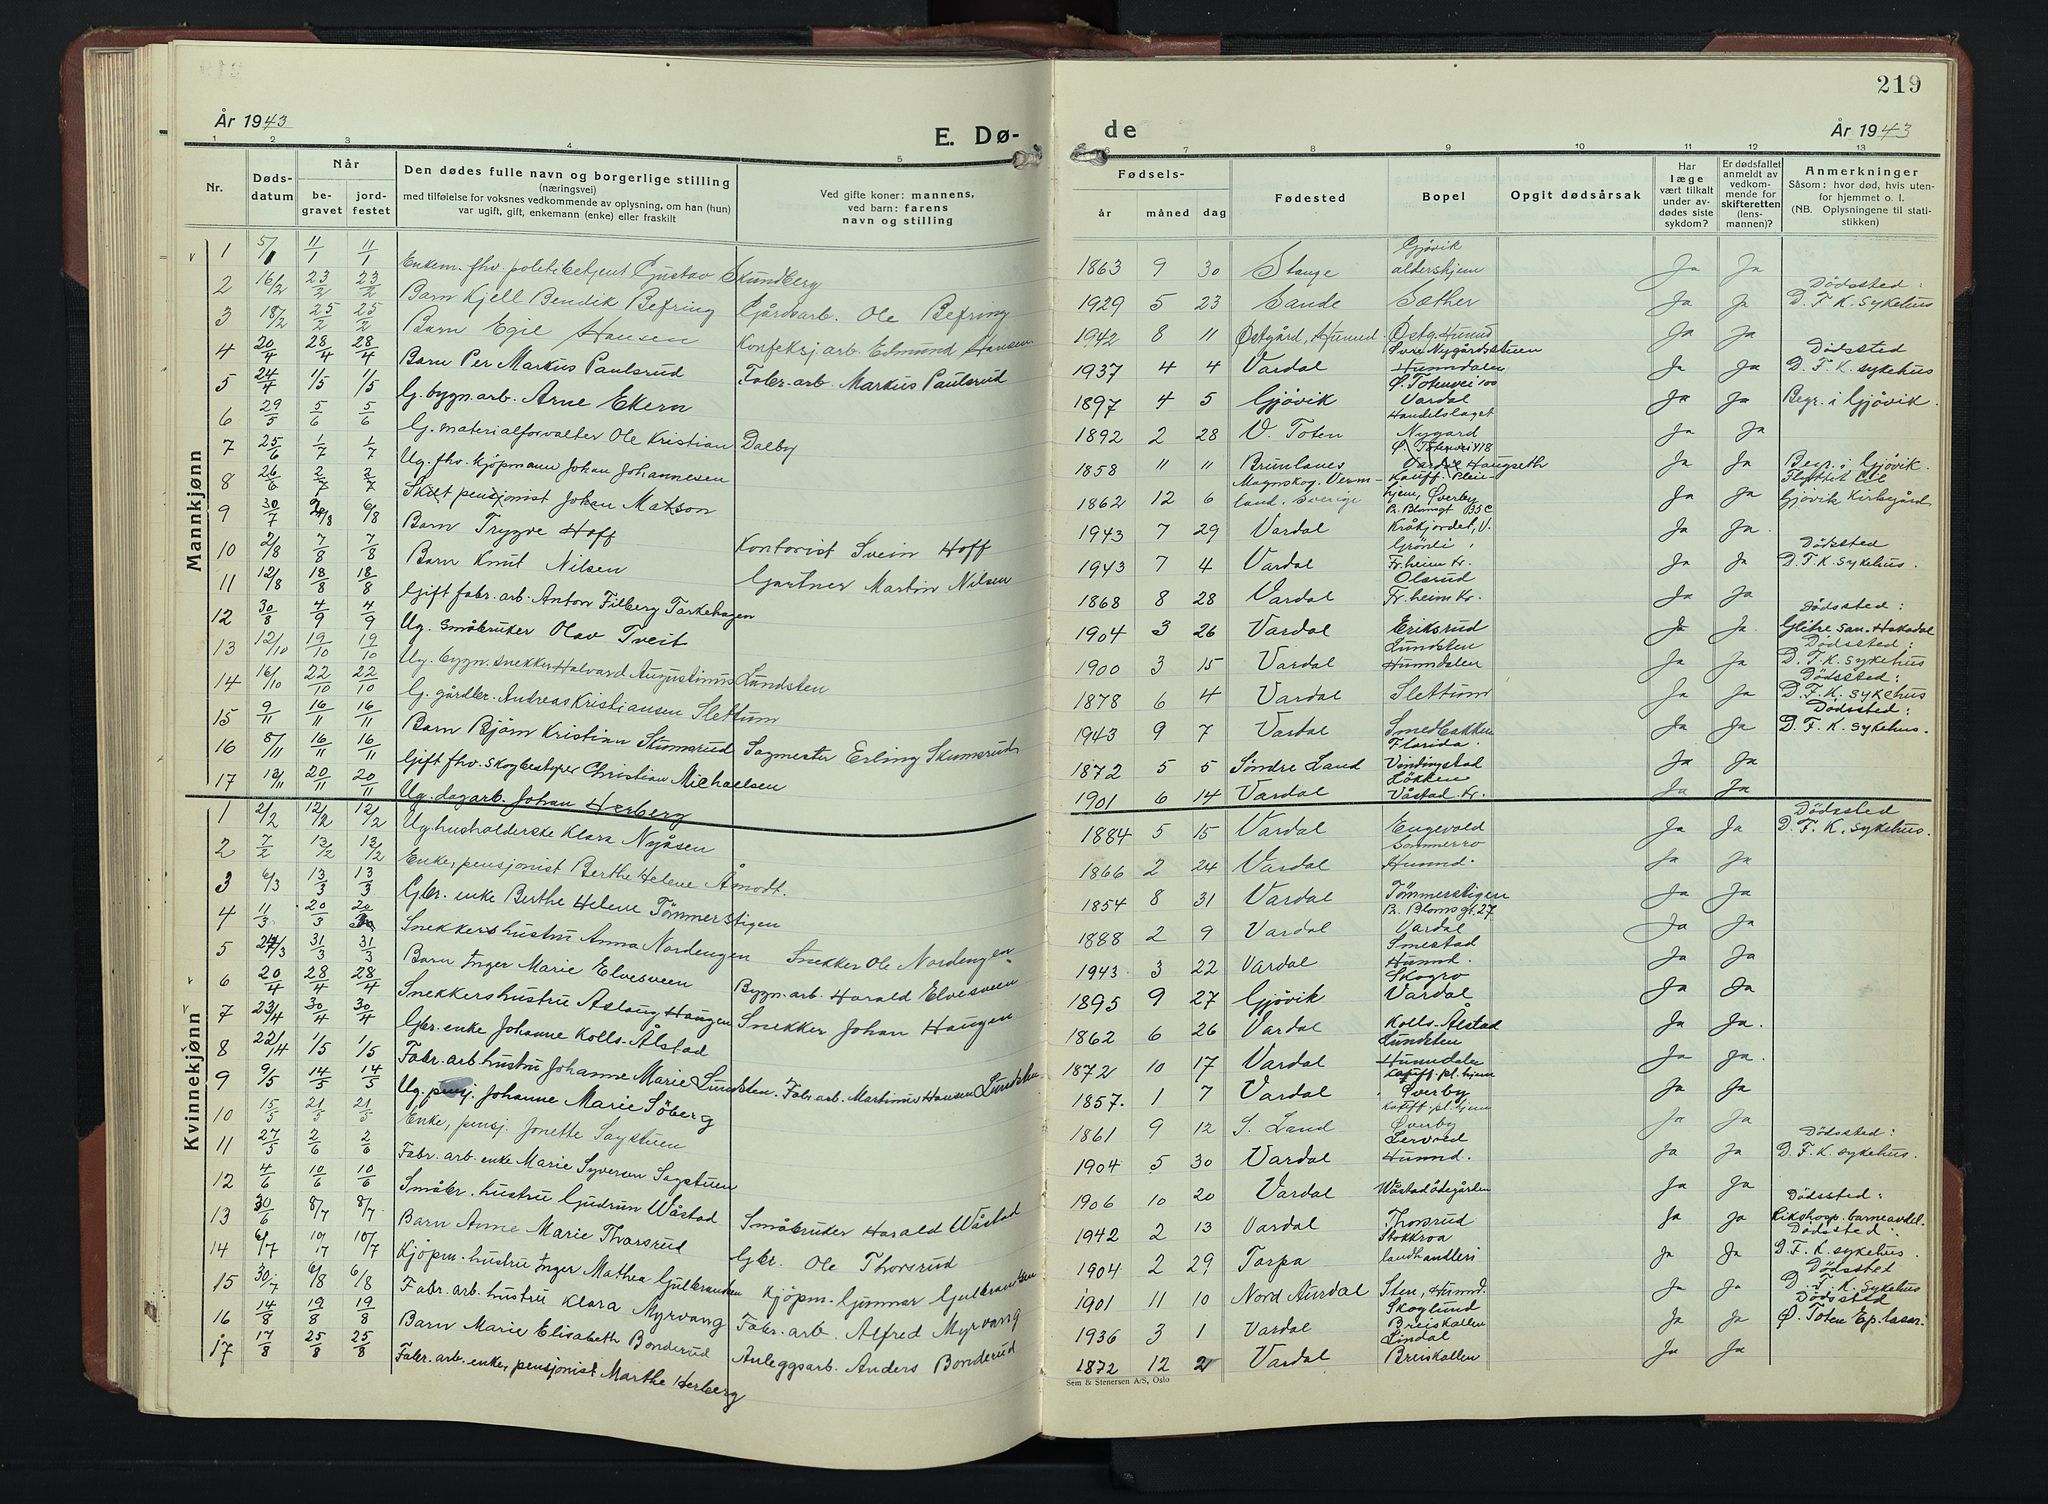 219
År 1943
E. Dø-
de
År 1943
1 2 3 4 5 6 7 8 9 10 11 12 13
Nr.
Døds-
datum
Når
be-
gravet
jord-
festet
Den dødes fulle navn og borgerlige stilling
(næringsvei)
med tilføielse for voksnes vedkommende av oplysning, om han (hun)
var ugift, gift, enkemann (enke) eller fraskilt
Ved gifte koner: mannens,
ved barn: farens
navn og stilling
Fødsels-
år måned dag
Fødested
Bopel
Opgit dødsårsak
Har
læge
vært tilkalt
under av-
dødes siste
sykdom?
Er dødsfallet
anmeldt av
vedkom-
mende for
skifteretten
(lens-
mannen)?
Anmerkninger
Såsom: hvor død, hvis uten-
for hjemmet o. l.
(NB. Oplysningene til stati-
stikken)
Mannkjønn
1 5/1 11/1 11/1 Enkem. fhv. politibetjent Gustav Skundberg 1863 9 30 Stange Gjøvik aldershjem Ja Ja
2 16/2 23/2 23/2 Barn Kjell Bendik Befring Gårdsarb. Ole Befring 1929 5 23 Sande Sæther Ja Ja Dødssted: D. F. K. Sykehus
3 18/2 25/2 25/2 Barn Egil Hansen Konfeksj. arb. Edmund Hansen 1942 8 11 Østgård, Hunnd. Østg. Hunnd Ja Ja
4 20/4 28/4 28/4 Barn Per Markus Paulsrud Fabr. arb. Markus Paulsrud 1937 4 4 Vardal Hunndalen Ja Ja Dødssted D. F. K. sykehus
5 24/4 1/5 1/5 G. bygn. arb. Arne Ekern 1897 4 5 Gjøvik Ø. Totenvei 100 Vardal Ja Ja Begr. i Gjøvik.
6 29/5 5/6 5/6 G. materialforvalter Ole Kristian Dalby 1892 2 28 V. Toten Handelslaget Nygard Ja Ja
7 25/6 1/7 1/7 Ug. fhv. kjøpmann Johan Johannesen 1858 11 11 Brunlanes Haugseth Ja Ja Begr. i Gjøvik.
8 26/6 2/7 2/7 Skilt pensjonist Johan Matson 1862 12 6 Magnskog. Verm-land. Sverige hjem, Øverby Ja Ja Flyttet til Gjøvik Kirkegård
9 30/7 6/8 Barn Trygve Hoff Kontorist Svein Hoff 1943 7 29 Vardal Kråkjordet, V. Ja Ja.
10 2/8 7/8 7/8 Barn Knut Nilsen Gartner Martin Nilsen 1943 7 4 Vardal Grønli, Fr. heim Kr. Ja Ja Dødssted D. F. K. Sykehus.
11 12/8 18/8 18/8 Gift fabr. arb. Anton Filberg Tarkehagen 1868 8 28 Vardal Olsrud Fr. heim Kr. Ja Ja
12 30/8 4/9 4/9 Ug. småbruker Olav Tveit 1904 3 26 Vardal Eriksrud Ja Ja. Dødssted: Glitre San. Hakadal
13 12/10 19/10 19/10 Ug. bygn. snekker Halvard Augustinus Lundsten 1900 3 15 Vardal Lundsten Hunndalen Ja Ja Dødssted: D. F. K. Sykehus
14 16/10 22/10 22/10 G. gårdbr. Andreas Kristiansen Slettum 1878 6 4 Vardal Slettum Ja Ja Dødssted: D. F. K. Sykehus
15 9/11 16/11 16/11 Barn Bjørn Kristian Skumsrud Sagmester Erling Skumsrud 1943 9 7 Vardal Smedbakken Ja Ja Dødssted: D. F. K. Sykehus.
16 8/11 16/11 16/11 Gift fhv. skogbestyrer Christian Michaelsen 1872 5 5 Søndre Land Florida. Vindingstad Ja Ja
17 20/11 20/11 Ug. dagarb. Johan Herberg 1901 6 14 Vardal Løkken Våstad. Kr. Ja Ja
Kvinnekjønn
1 2/2 12/2 12/2 Ug. husholderske Klara Nyåsen 1884 5 15 Vardal Engevold Ja Ja Dødssted D. F. K. Sykehus.
2 7/2 13/2 13/2 Enke, pensjonist Berthe Helene Åmodt. 1866 2 24 Vardal Sommerro Hunnd. Ja Ja
3 6/3 13/3 13/3 Gbr. enke Berthe Helene Tømmerstigen 1854 8 31 Vardal Tømmerstigen Ja Ja
4 11/3 20/3 20/3 Snekkershustru Anna Nordengen Snekker Ole Nordengen 1888 2 9 Vardal B. Blomsgt. 27 Vardal Ja Ja
5 24/3 31/3 31/3 Barn Inger Marie Elvesveen Bygn. arb. Harald Elvesveen 1943 3 22 Vardal Smestad Hunnd. Ja Ja
6 20/4 28/4 28/4 Snekkershustru Aslaug Haugen Snekker Johan Haugen 1895 9 27 Gjøvik Skogro Vardal Ja Ja
7 23/4 30/4 30/4 Gbr. enke Johanne Kolls-Ålstad 1862 6 26 Vardal Kolls-Ålstad Ja Ja.
8 22/4 1/5 1/5 Fabr. arb. hustru Johanne Marie Lundsten. Fabr. arb. Martinus Hansen Lundsten 1872 10 17 Vardal Lundsten Hunndalen Ja Ja.
9 9/5 14/5 14/5 Ug. pensj. Johanne Marie Søberg 1857. 1 7 Vardal Kauff. pl. hjem Øverby Ja Ja
10 15/5 21/5 21/5 Enke, pensj. Jonette Sagstuen 1861 9 12 S. Land Kauff. pl. hjem Øverby Ja Ja
11 27/5 2/6 2/6 Fabr. arb. enke Marie Syversen Sagstuen 1904 5 30 Vardal Lervold Hunnd. Ja Ja Dødssted: D. F. K. sykehus.
12 4/6 10/6 10/6 Småbr. hustru Gudrun Wåstad Småbruker Harald Wåstad 1906 10 20 Vardal Wåstadødegården Ja Ja
13 30/6 8/7 8/7 Barn Anne Marie Thorsrud Gbr. Ole Thorsrud 1942 2 13 Vardal Thorsrud Ja Ja Dødssted: Rikshosp. barneavdel.
14 6/7 10/7 10/7 Kjøpm. hustru Inger Mathea Gulbrandsen Kjøpm. Gunnar Gulbrandsen 1904 2 29 Torpa Stokkroa landhandleri Ja Ja Dødssted: D. F. K. sykehus.
15 30/7 6/8 6/8 Fabr. arb. hustru Klara Myrvang Fabr. arb. Alfred Myrvang 1901 11 10 Nord Aurdal Sten, Hunnd. Ja Ja Dødssted D. F. K. Sykehus
16 14/8 19/8 19/8 Barn Marie Elisabeth Bonderud Anleggsarb. Anders Bonderud 1936 3 1 Vardal Skoglund Breiskallen Ja Ja Dødssted Ø. Toten Ep. lasar.
17 17/8 25/8 25/8 Fabr. arb. enke, pensjonist Marthe Herberg 1872 12 2 Vardal Lindal Breiskallen Ja Ja
Sem & Stenersen A/S, Oslo